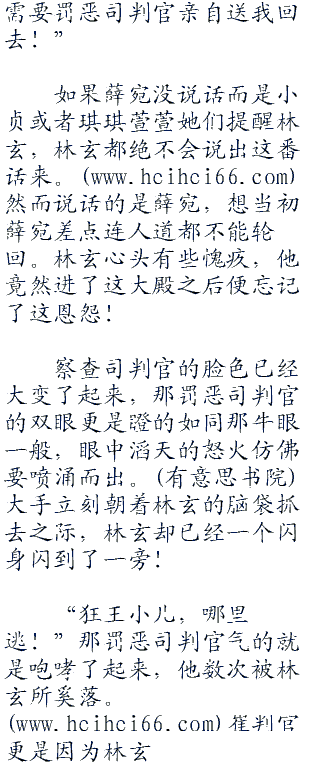 需要罚恶司判官亲自送我回
去！”
如果薛宛没说话而是小
贞或者琪琪萱萱她们提醒林
玄，林玄都绝不会说出这番
话来。(www.hcihci66.com)
然而说话的是薛宛，想当初
薛宛差点连人道都不能轮
回。林玄心头有些愧疚，他
竟然进了这大殿之后便忘记
了这恩怨！
察查司判官的脸色已经
大变了起来，那罚恶司判官
的双眼更是瞪的如同那牛眼
一般，眼中滔天的怒火仿佛
要喷涌而出。(有意思书院)
大手立刻朝着林玄的脑袋抓
去之际，林玄却已经一个闪
身闪到了一旁！
“狂王小儿，哪里
逃！”那罚恶司判官气的就
是咆哮了起来，他数次被林
玄所奚落。
(www.hcihci66.com)崔判官
更是因为林玄